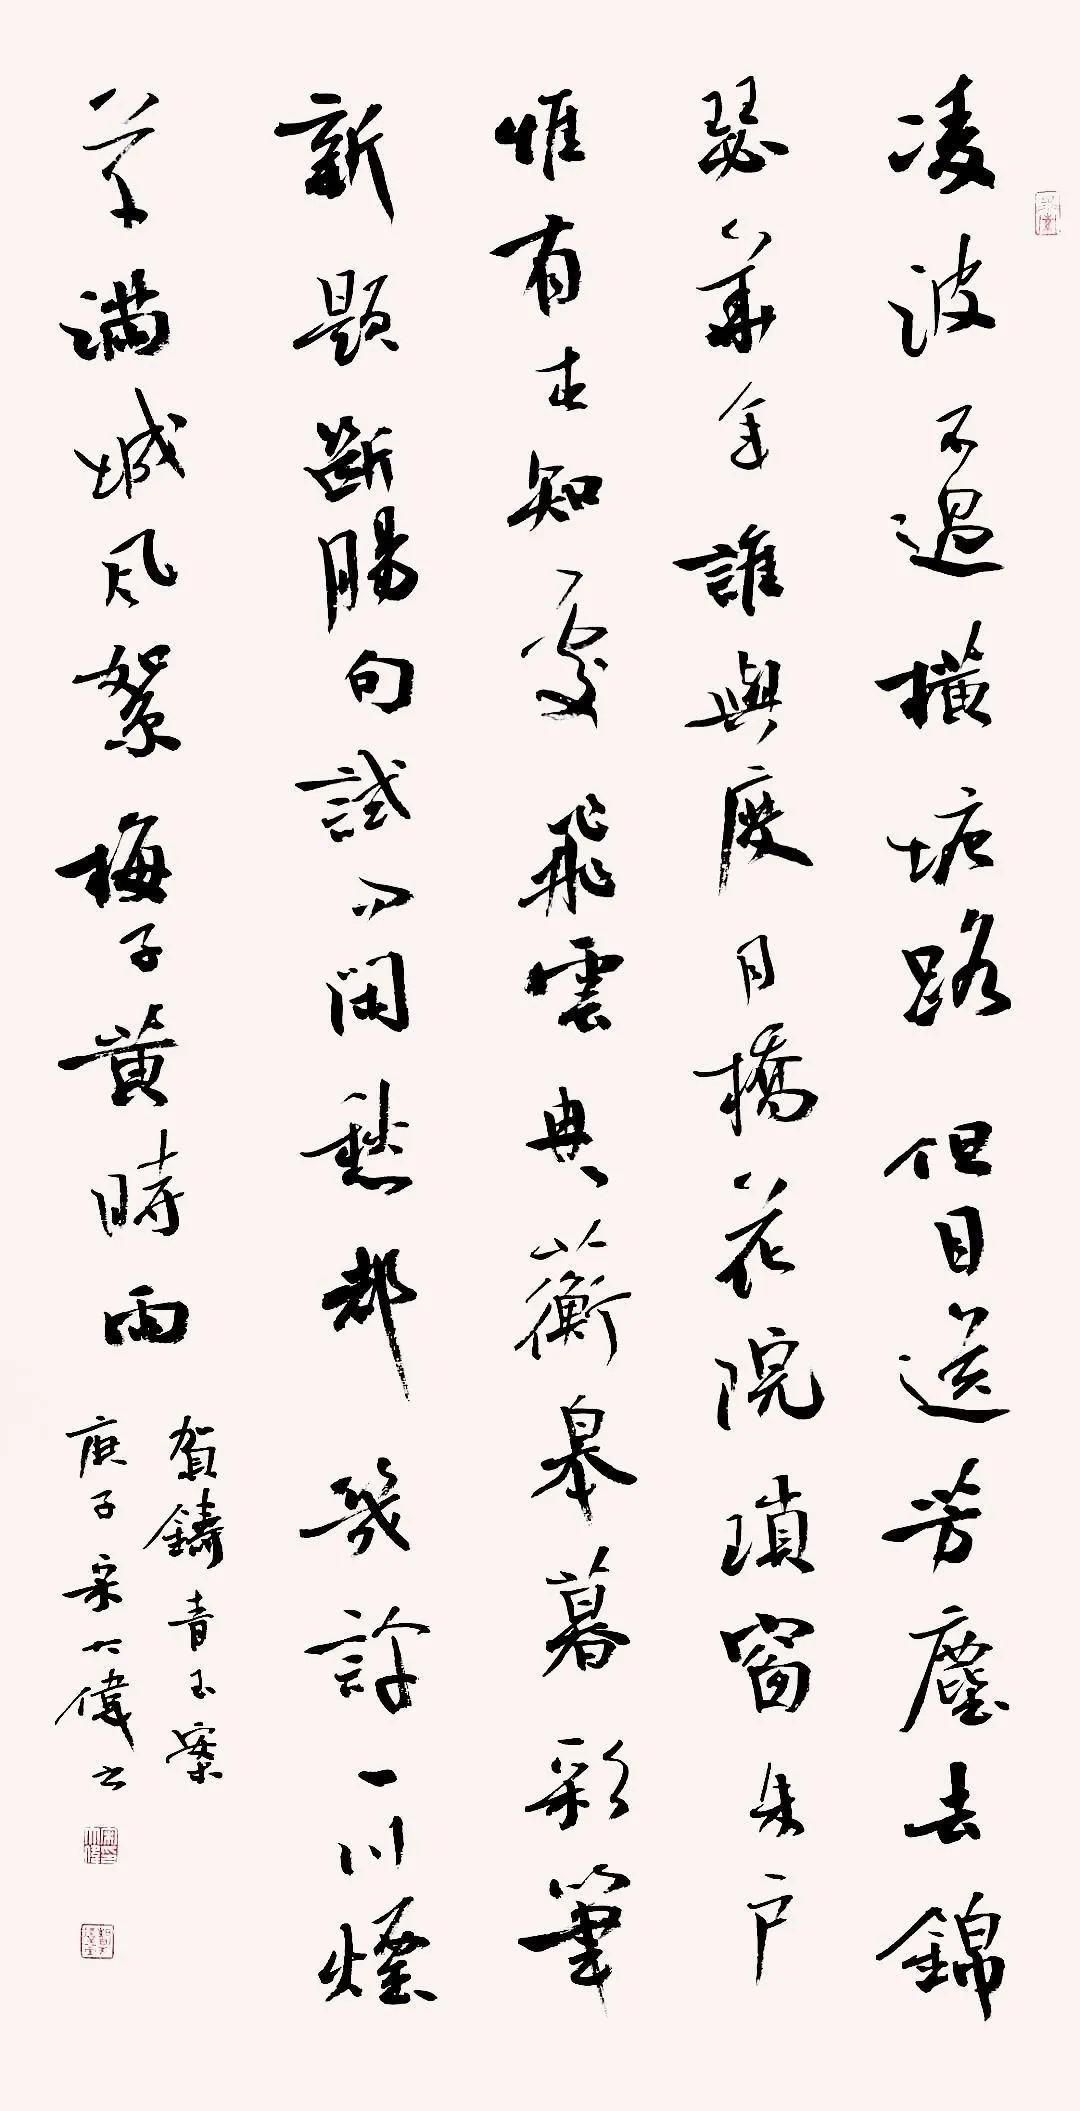 凌波不過橫塘路但目送芳塵去錦
瑟華年誰與度月橋花院瑣窗朱戶
惟有春知處飛雲冉冉蘅皋暮彩筆
新題斷腸句試問閑愁都幾許一川煙
草滿城風絮梅子黃時雨
賀鑄青玉案
庚子宋大偉書